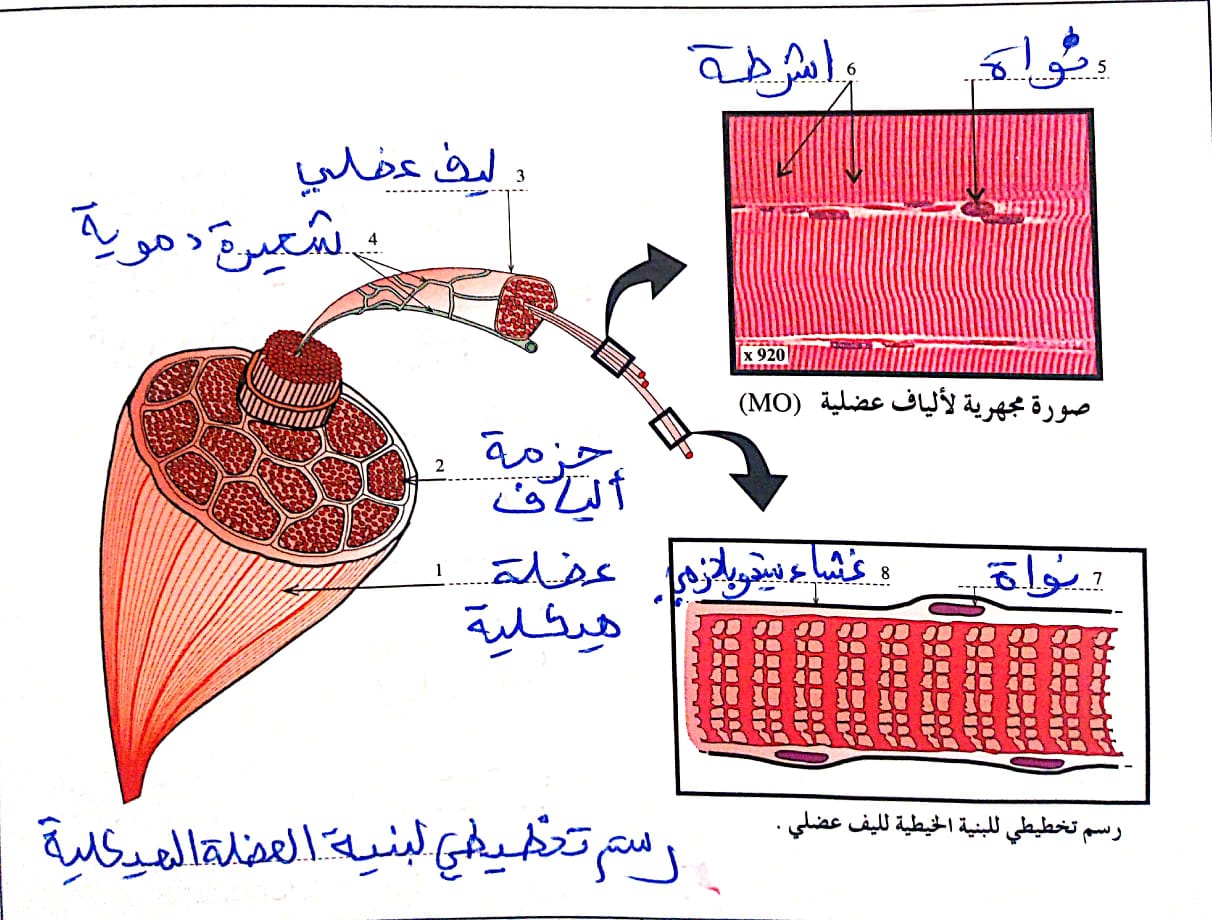 نواة 5
اشرطة 6
ليف عضلي 3
شعيرة دموية 4
x 920
صورة مجهرية لألياف عضلية (MO)
حزمة 2
ألياف
عضلة 1
هيكلية
نواة 7
غشاء سيتوبلازمي 8
رسم تخطيطي للبنية الخيطية لليف عضلي .
رسم تخطيطي لبنية العضلة الهيكلية